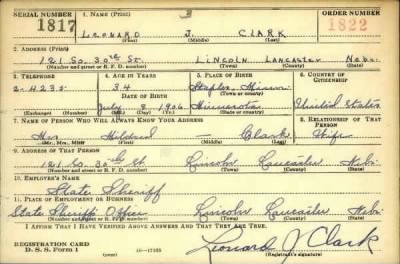 SERIAL NUMBER 1. NAME (Print) 3 ORDER NUMBER
1817 LEONARD J. CLARK 1822
(First) (Middle) (Last)
2. ADDRESS (Print)
121 So. 30th St. LINCOLN LANCASTER Nebr.
(Number and street or R. F. D. number) (Town) (County) (State)
3. TELEPHONE 4. AGE IN YEARS 5. PLACE OF BIRTH 6. COUNTRY OF CITIZENSHIP
2-4235 34 Staples, Minn.
DATE OF BIRTH (Town or county)
July 8 1906 Minnesota United States
(Exchange) (Number) (Mo.) (Day) (Yr.) (State or country)
7. NAME OF PERSON WHO WILL ALWAYS KNOW YOUR ADDRESS 8. RELATIONSHIP OF THAT PERSON
Mrs. Mildred — Clark Wife
(Mr., Mrs., Miss) (First) (Middle) (Last)
9. ADDRESS OF THAT PERSON
121 So. 30th St Lincoln Lancaster Nebr.
(Number and street or R. F. D. number) (Town) (County) (State)
10. EMPLOYER'S NAME
State Sheriff
11. PLACE OF EMPLOYMENT OR BUSINESS
State Sheriff Office Lincoln Lancaster Nebr.
(Number and street or R. F. D. number) (Town) (County) (State)
I AFFIRM THAT I HAVE VERIFIED ABOVE ANSWERS AND THAT THEY ARE TRUE.
REGISTRATION CARD
D. S. S. Form 1 (over) Leonard J Clark
(Registrant's signature)